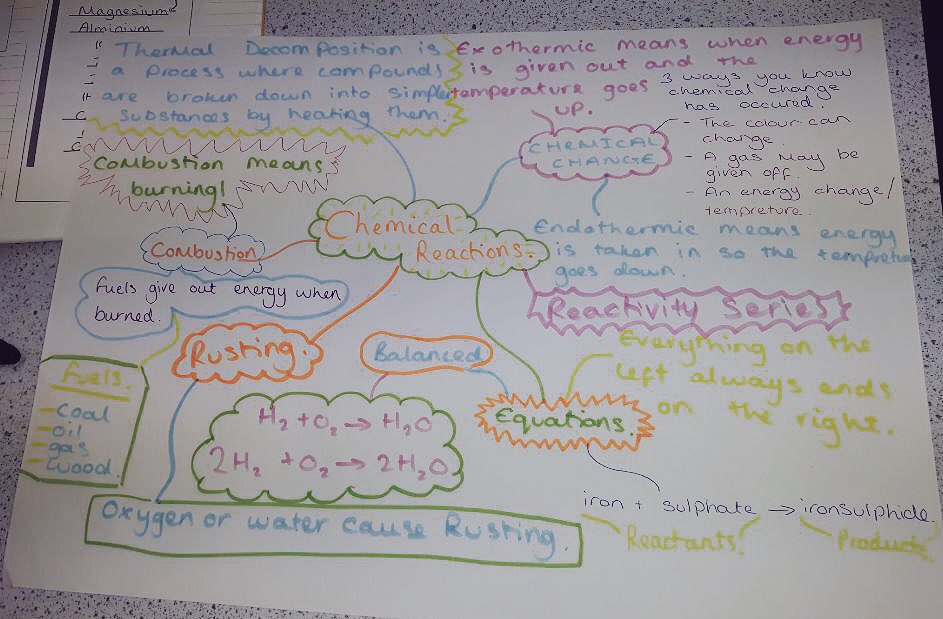 Magnesium
Aluminium
Thermal Decomposition is
a process where compounds
are broken down into simpler
substances by heating them.
Exothermic means when energy
is given out and the
temperature goes
up.
3 ways you know
chemical change
has occured.
- The colour can
change.
- A gas may be
given off.
- An energy change/
tempreture.
CHEMICAL
CHANGE
Combustion means
burning!
Chemical
Reactions.
Combustion
Endothermic means energy
is taken in so the tempreture
goes down.
Fuels give out energy when
burned.
Reactivity Series
Rusting.
Balanced
Everything on the
left always ends
on the right.
Fuels.
- Coal
- Oil
- gas
- wood.
H₂ + O₂ → H₂O
2H₂ + O₂ → 2H₂O
Equations.
iron + sulphate → ironsulphide.
Reactants!
Product
Oxygen or water cause Rusting.